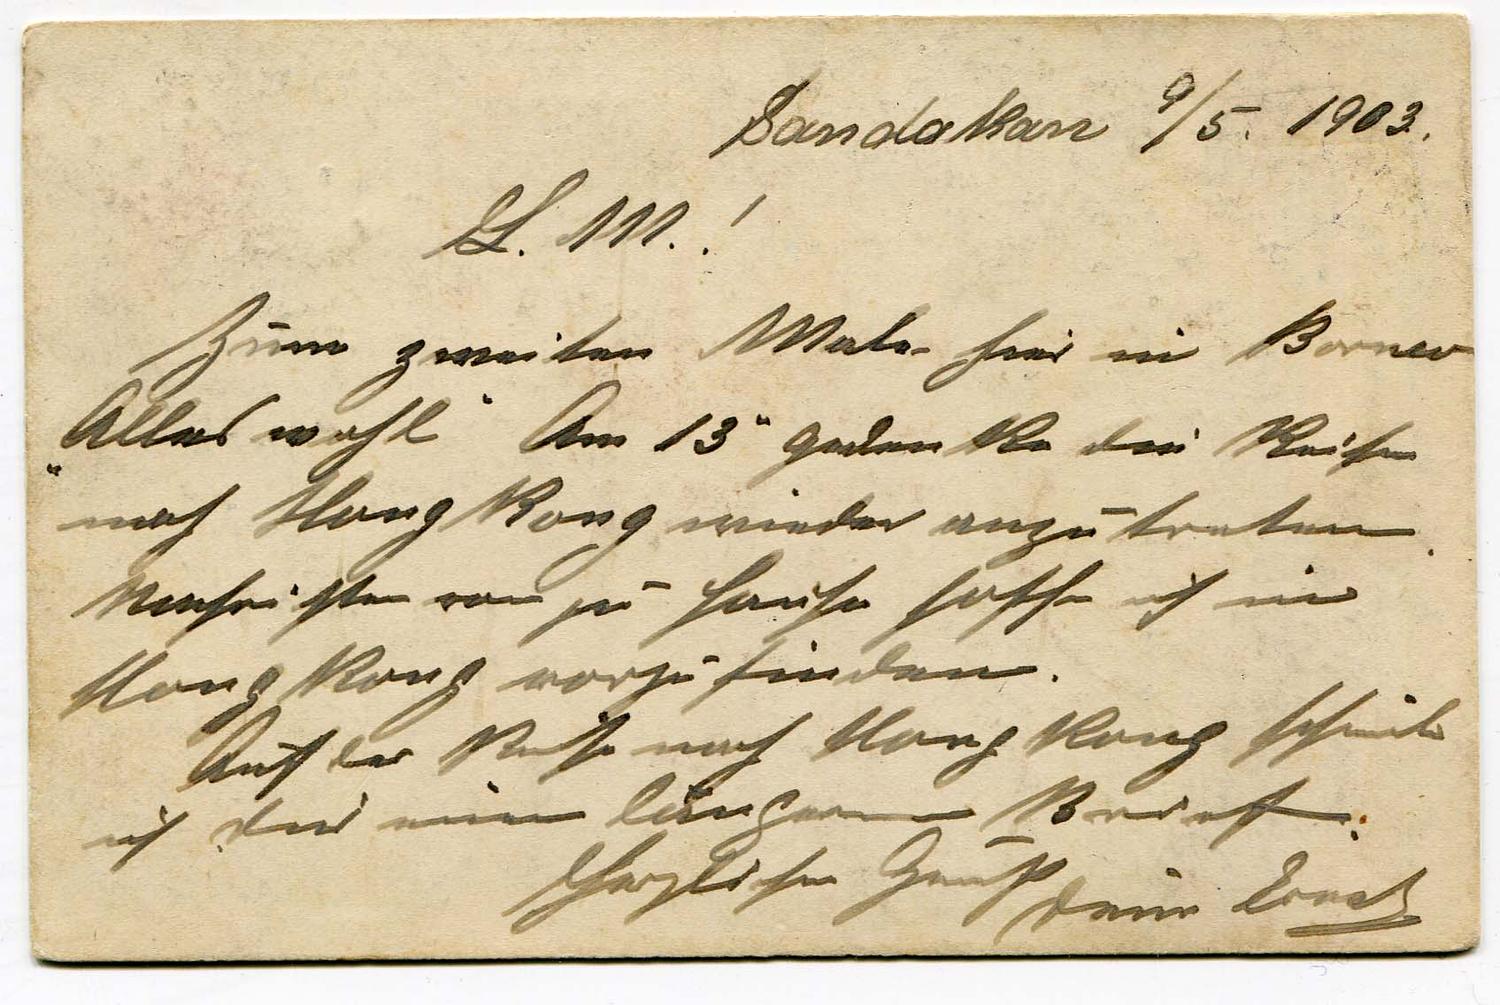 Sandakan 9/5. 1903.
L. M.!
Zum zweiten Male hier in Borneo
"Alles wohl" Am 13" gedenke die Reise
nach Hong Kong wieder anzutreten.
Nachrichten von zu Hause hoffe ich in
Hong Kong vorzufinden.
Auf der Reise nach Hong Kong schreibe
ich dir einen längeren Brief.
Herzlichen Gruß dein Ernst